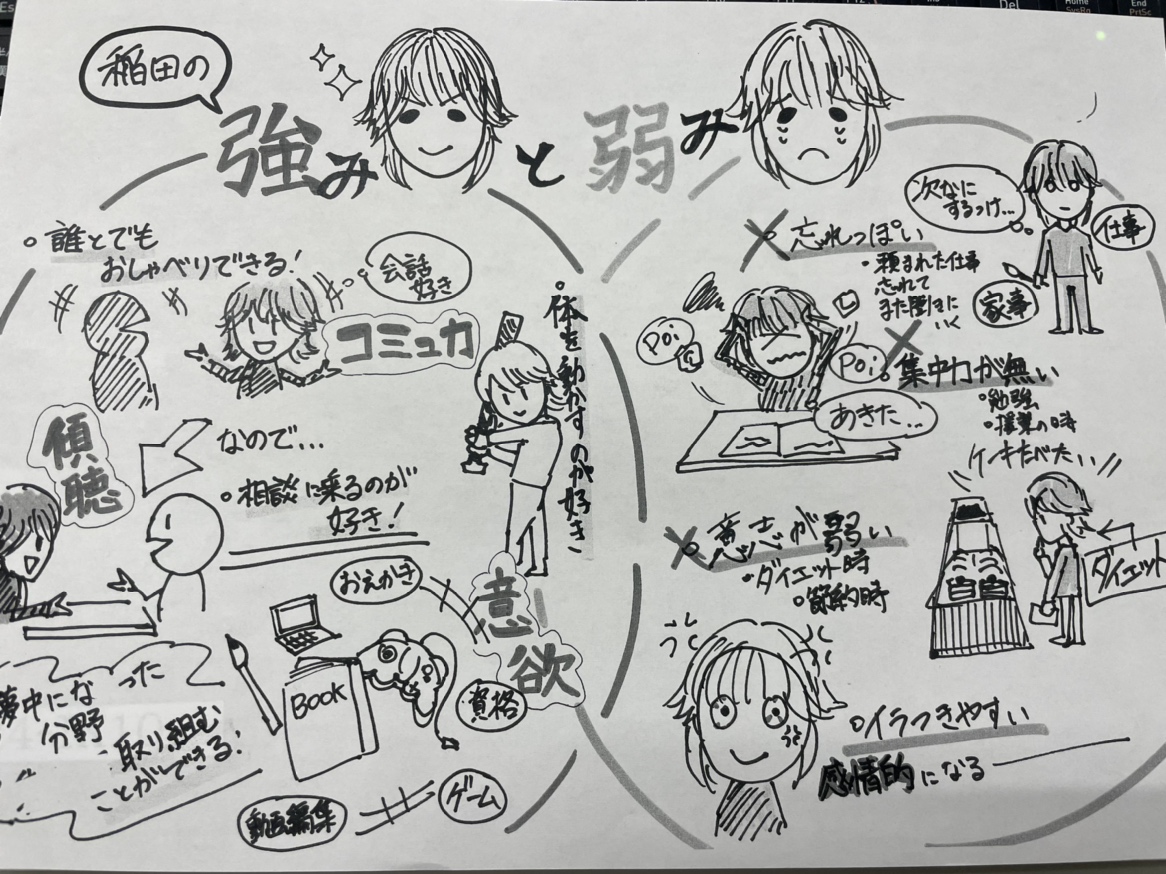 稲田の
強みと弱み
誰とでも
おしゃべりできる!
会話
好き
コミュカ
体を動かすのが好き
傾聴
なので…
相談に乗るのが
好き!
おえかき
意欲
BOOK
資格
夢中になった
分野
取り組む
ことができる!
動画編集
ゲーム
次なに
するっけ…
仕事
家事
忘れっぽい
・頼まれた仕事
忘れて
また聞きに
いく
Poi
Poi
集中力が無い
・勉強
・授業の時
あきた…
ケーキたべたい
意志が弱い
・ダイエット時
・節約時
ダイエット
イラつきやすい
感情的になる